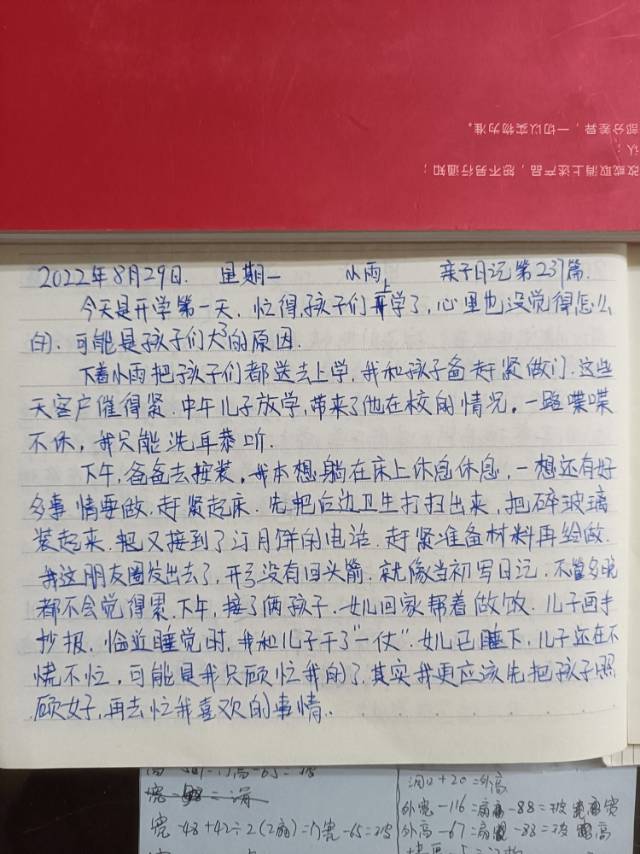 部分差异，一切以实物为准。
认；
改或取消上述产品，恕不另行通知；
2022年8月29日. 星期一 小雨 亲子日记第237篇.
今天是开学第一天，忙得孩子们开上学了，心里也没觉得怎么
的. 可能是孩子们大了的原因.
下着小雨把孩子们都送去上学，我和孩子爸赶紧做门. 这些
天客户催得紧. 中午儿子放学，带来了他在校的情况，一路喋喋
不休，我只能洗耳恭听.
下午，爸爸去按装，我本想躺在床上休息休息，一想还有好
多事情要做. 赶紧起床. 先把后边卫生打扫出来，把碎玻璃
装起来. 把又接到了订月饼的电话. 赶紧准备材料再给做.
我这朋友圈发出去了，开弓没有回头箭. 就像当初写日记. 不管多晚
都不会觉得累. 下午，接了俩孩子. 女儿回家帮着做饭. 儿子画手
抄报. 临近睡觉时，我和儿子干了“一仗”. 女儿已睡下，儿子还在不
慌不忙，可能是我只顾忙我的了. 其实我更应该先把孩子照
顾女子，再去忙我喜欢的事情.
+20=外高
外宽-116=扇-88=玻宽
宽-48+42÷2(2扇)=宽-65=
外高-67=扇-83=玻高